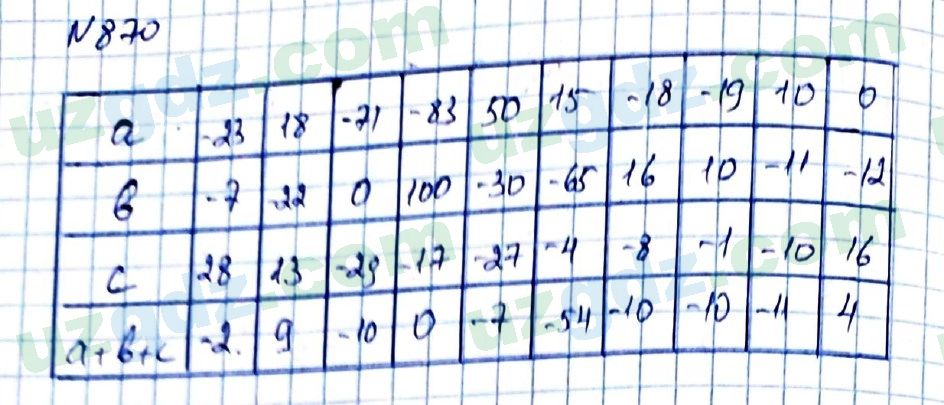 N870
a -23 18 -71 -83 50 15 -18 -19 10 0
в -7 -22 0 100 -30 -65 16 10 -11 -12
c 28 13 -29 -17 -27 -4 -8 -1 -10 16
a+в+c -2 9 -10 0 -7 -54 -10 -10 -11 4
uzgdz.com